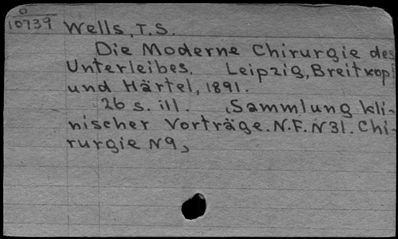 0
10739 Wells, T.S.
Die Moderne Chirurgie des
Unterleibes. Leipzig, Breitkopf
und Härtel, 1891.
26 s. ill. (Sammlung kli-
nischer Vorträge. N.F. N 31. Chi-
rurgie N 9)